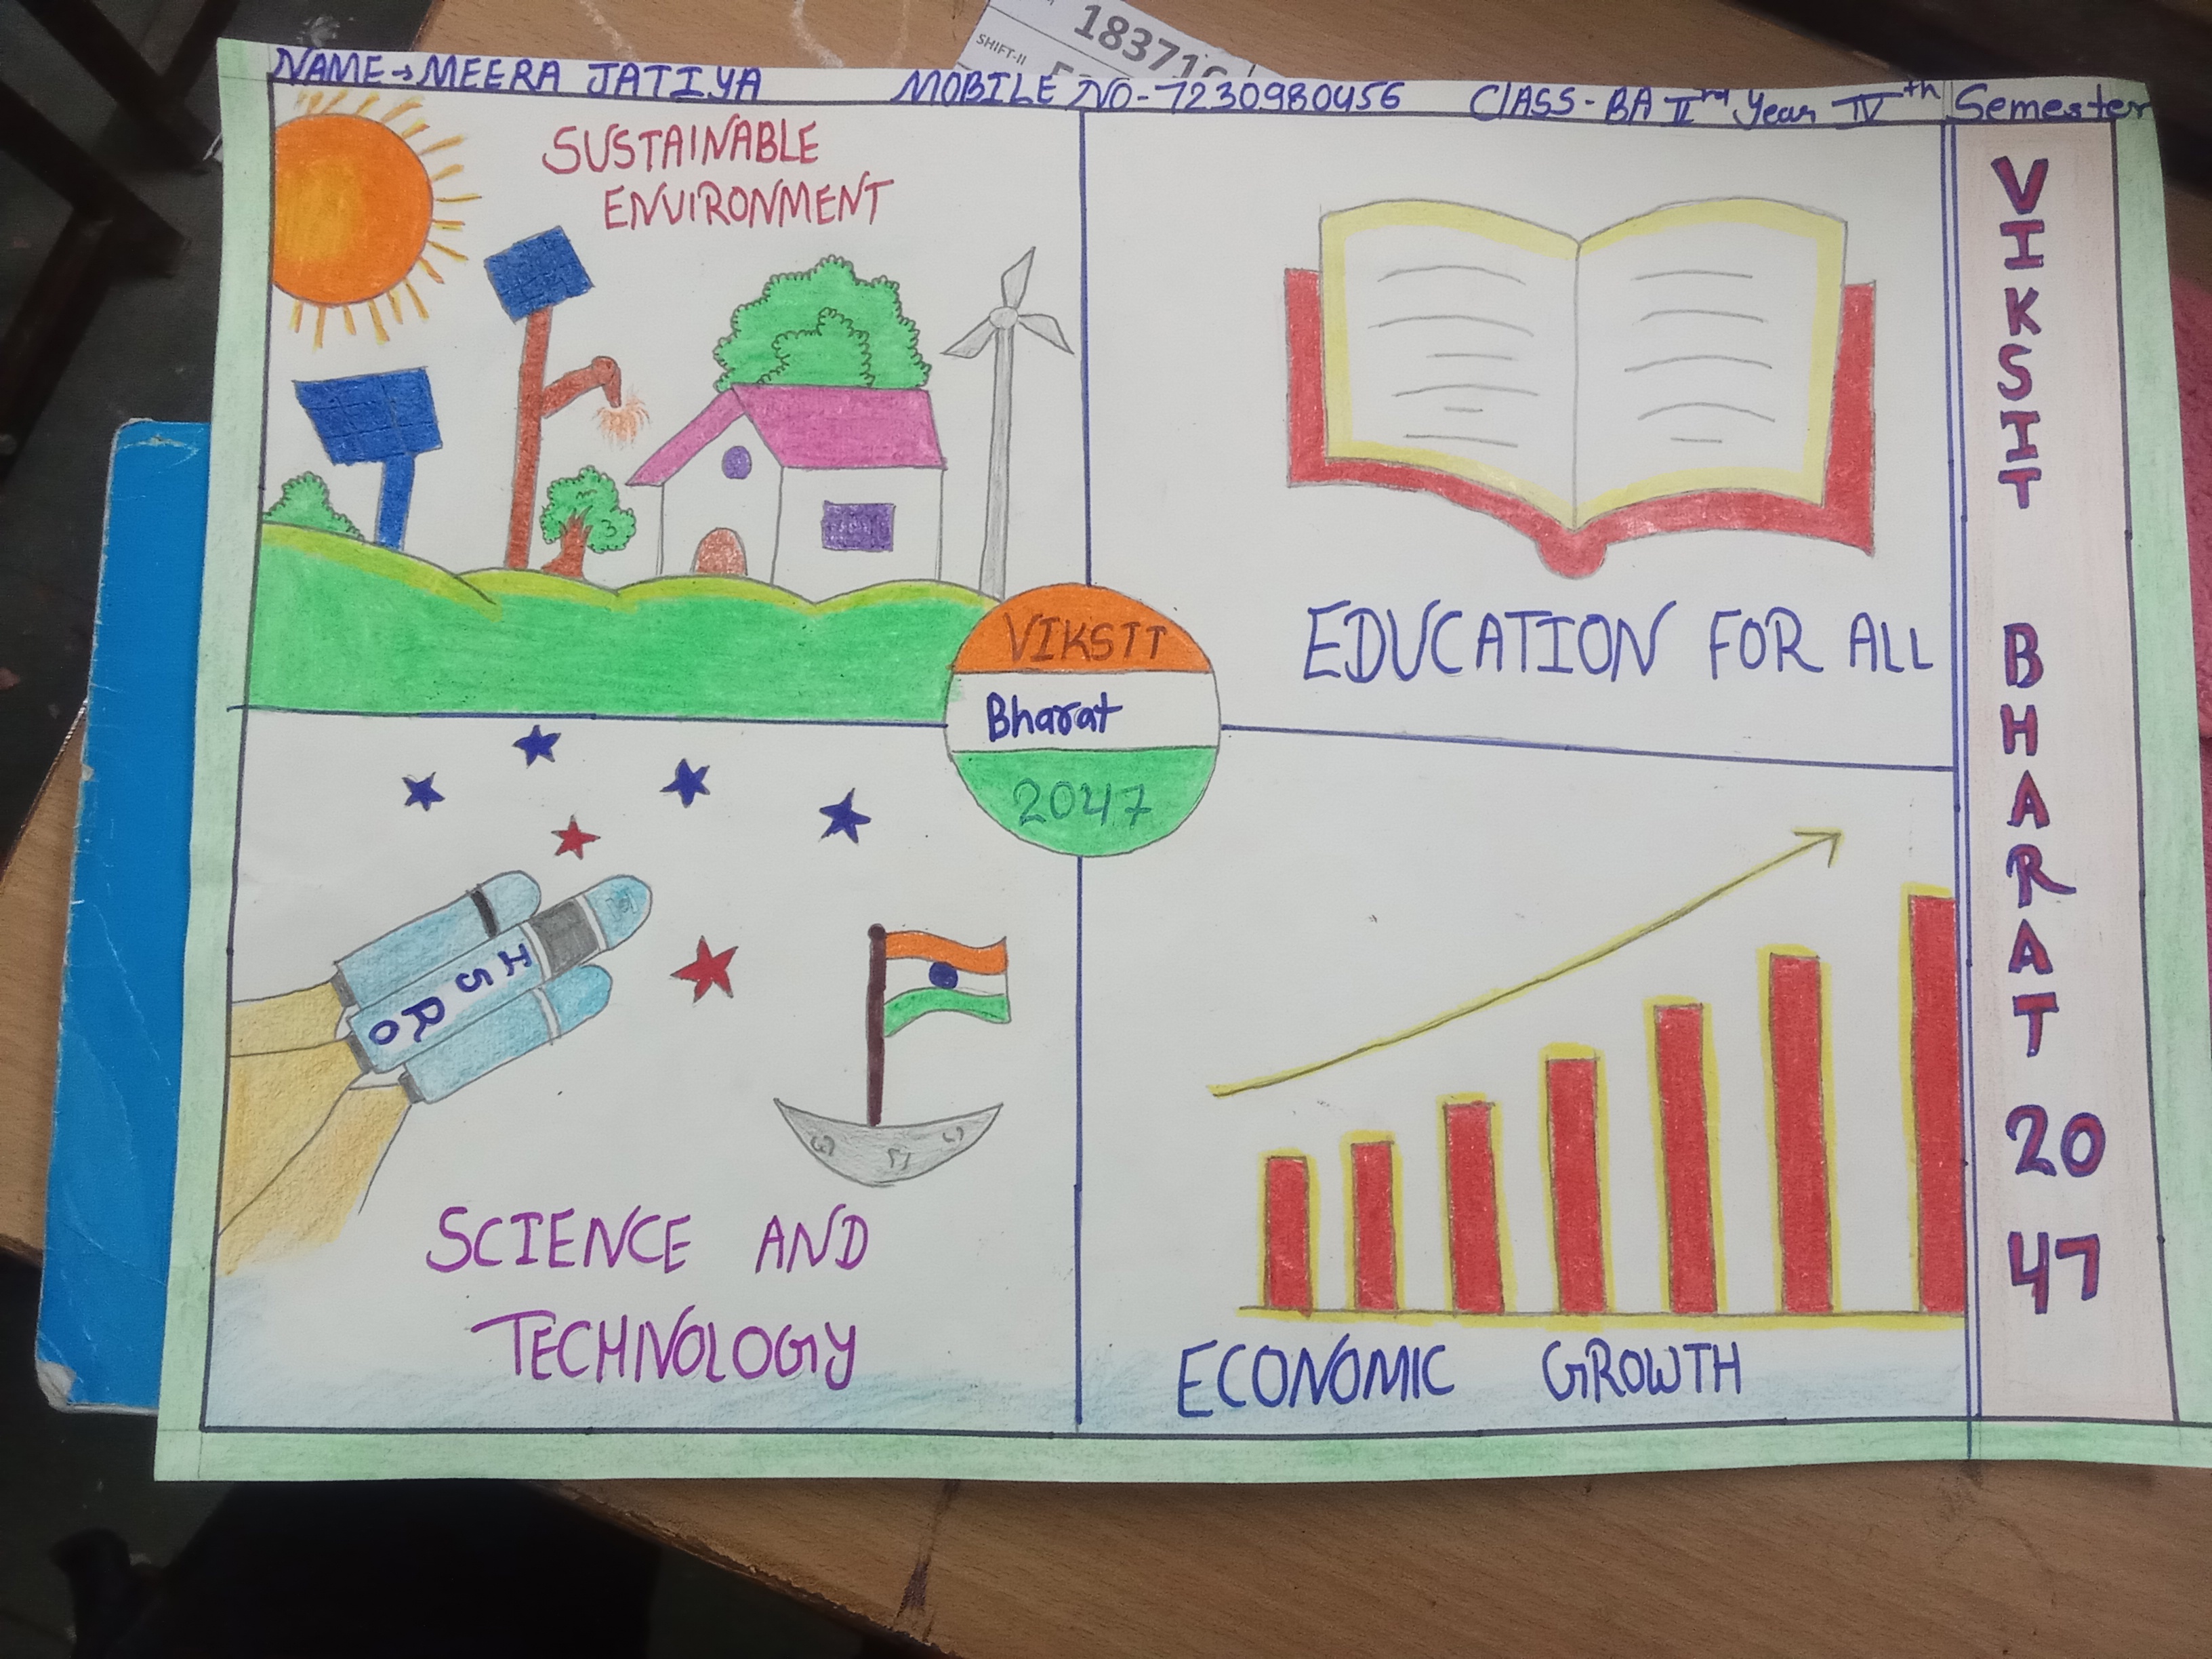 18371
SHIFT-II
NAME→MEERA JATIYA MOBILE NO-7230980456 CLASS-BA IIrd Year IVth Semester
SUSTAINABLE
ENVIRONMENT
EDUCATION FOR ALL
VIKSIT
Bharat
2047
ISRO
SCIENCE AND
TECHNOLOGY
ECONOMIC GROWTH
VIKSIT BHARAT 2047